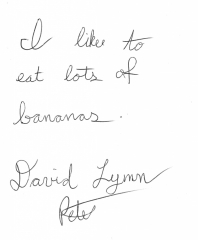 I like to
eat lots of
bananas.
David Lymn
Pete